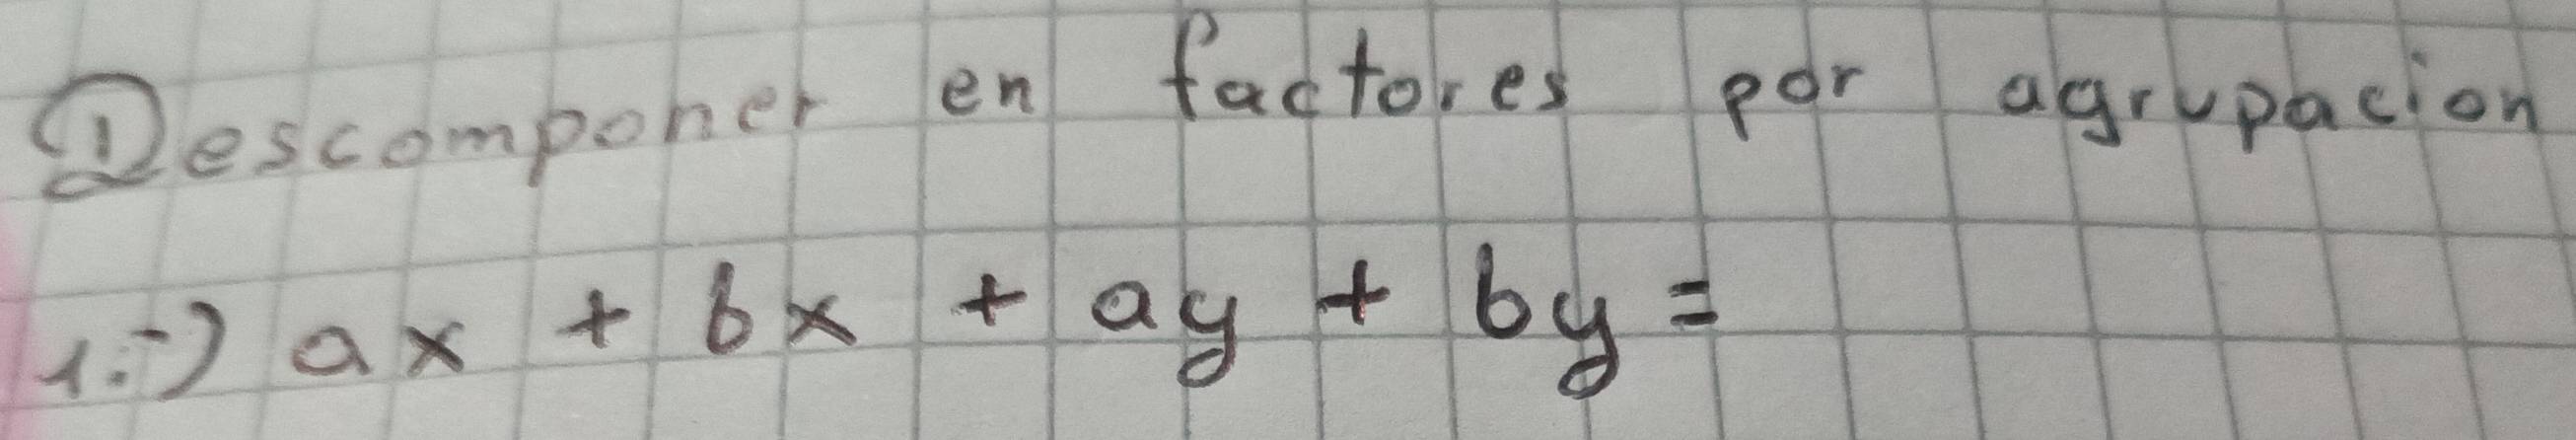 ① Descomponer en factores por agrupacion
1.-) ax + bx + ay + by =